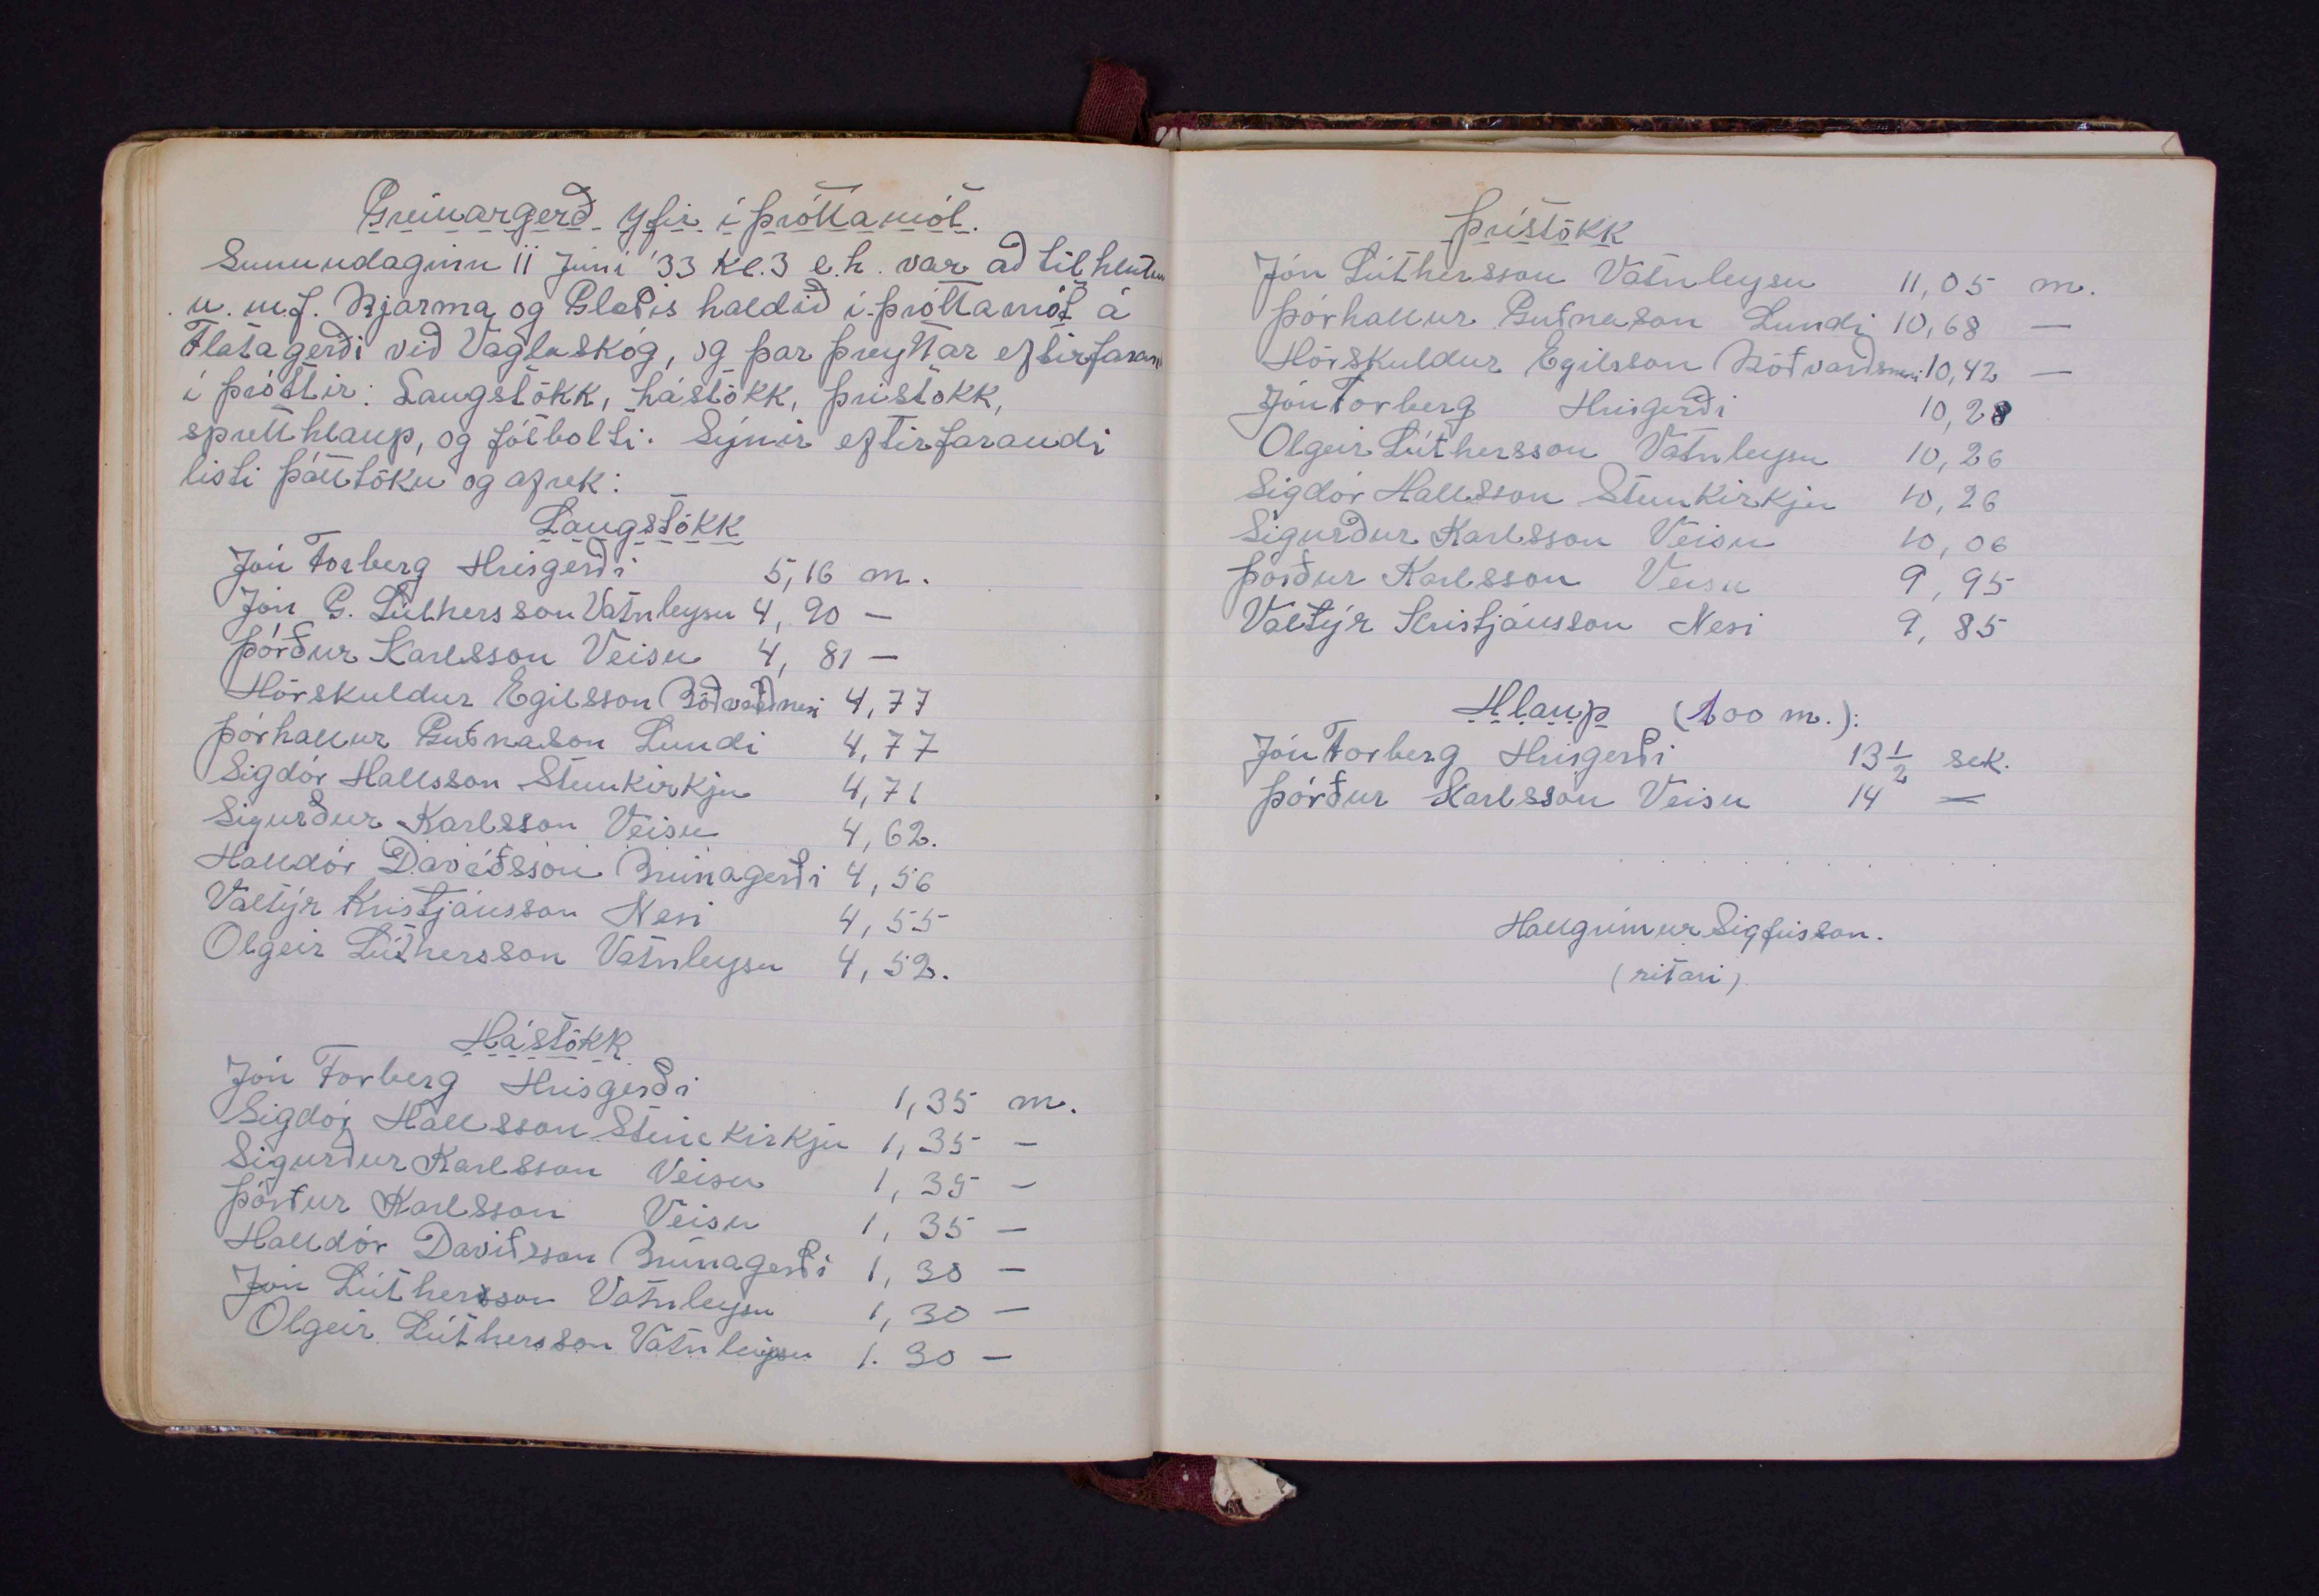 Greinargerð yfir íþróttamót.
Sunnudaginn 11 Júní '33 kl. 3 e.h. var að tilhlutun
u.m.f. Bjarma og Gleðis haldið íþróttamót á
Flatagerði við Vaglaskóg, og þar þreyttar eftirfarandi
íþróttir: Langstökk, hástökk, þrístökk,
spretthlaup, og fótbolti. Sýnir eftirfarandi
listi þátttöku og afrek:
Langstökk
Jón Forberg Hrísgerði 5,16 m.
Jón G. Lúthersson Vatnleysu 4,90 —
Þórður Karlsson Veisu 4,81 —
Hörskuldur Egilsson Böðvarðsnesi 4,77
Þórhallur Guðnason Lundi 4,77
Sigdór Hallsson Steinkirkju 4,71
Sigurður Karlsson Veisu 4,62.
Halldór Davíðsson Brúnagerði 4,56
Valtýr Kristjánsson Nesi 4,55
Olgeir Lúthersson Vatnleysu 4,52.
Hástökk
Jón Forberg Hrísgerði 1,35 m.
Sigdór Hallsson Steinkirkju 1,35 —
Sigurður Karlsson Veisu 1,35 —
Þórður Karlsson Veisu 1,35 —
Halldór Davíðsson Brúnagerði 1,30 —
Jón Lúthersson Vatnleysu 1,30 —
Olgeir Lúthersson Vatnleysu 1.30 —
Þrístökk
Jón Lúthersson Vatnleysu 11,05 m.
Þórhallur Guðnason Lundi 10,68 —
Hörskuldur Egilsson Böðvarðsnesi 10,42 —
Jón Forberg Hrísgerði 10,28
Olgeir Lúthersson Vatnleysu 10,26
Sigdór Hallsson Steinkirkju 10,26
Sigurður Karlsson Veisu 10,06
Þórður Karlsson Veisu 9,95
Valtýr Kristjánsson Nesi 9,85
Hlaup (100 m.):
Jón Forberg Hrísgerði 13 1/2 sek.
Þórður Karlsson Veisu 14 —
Hallgrímur Sigfússon.
(ritari)